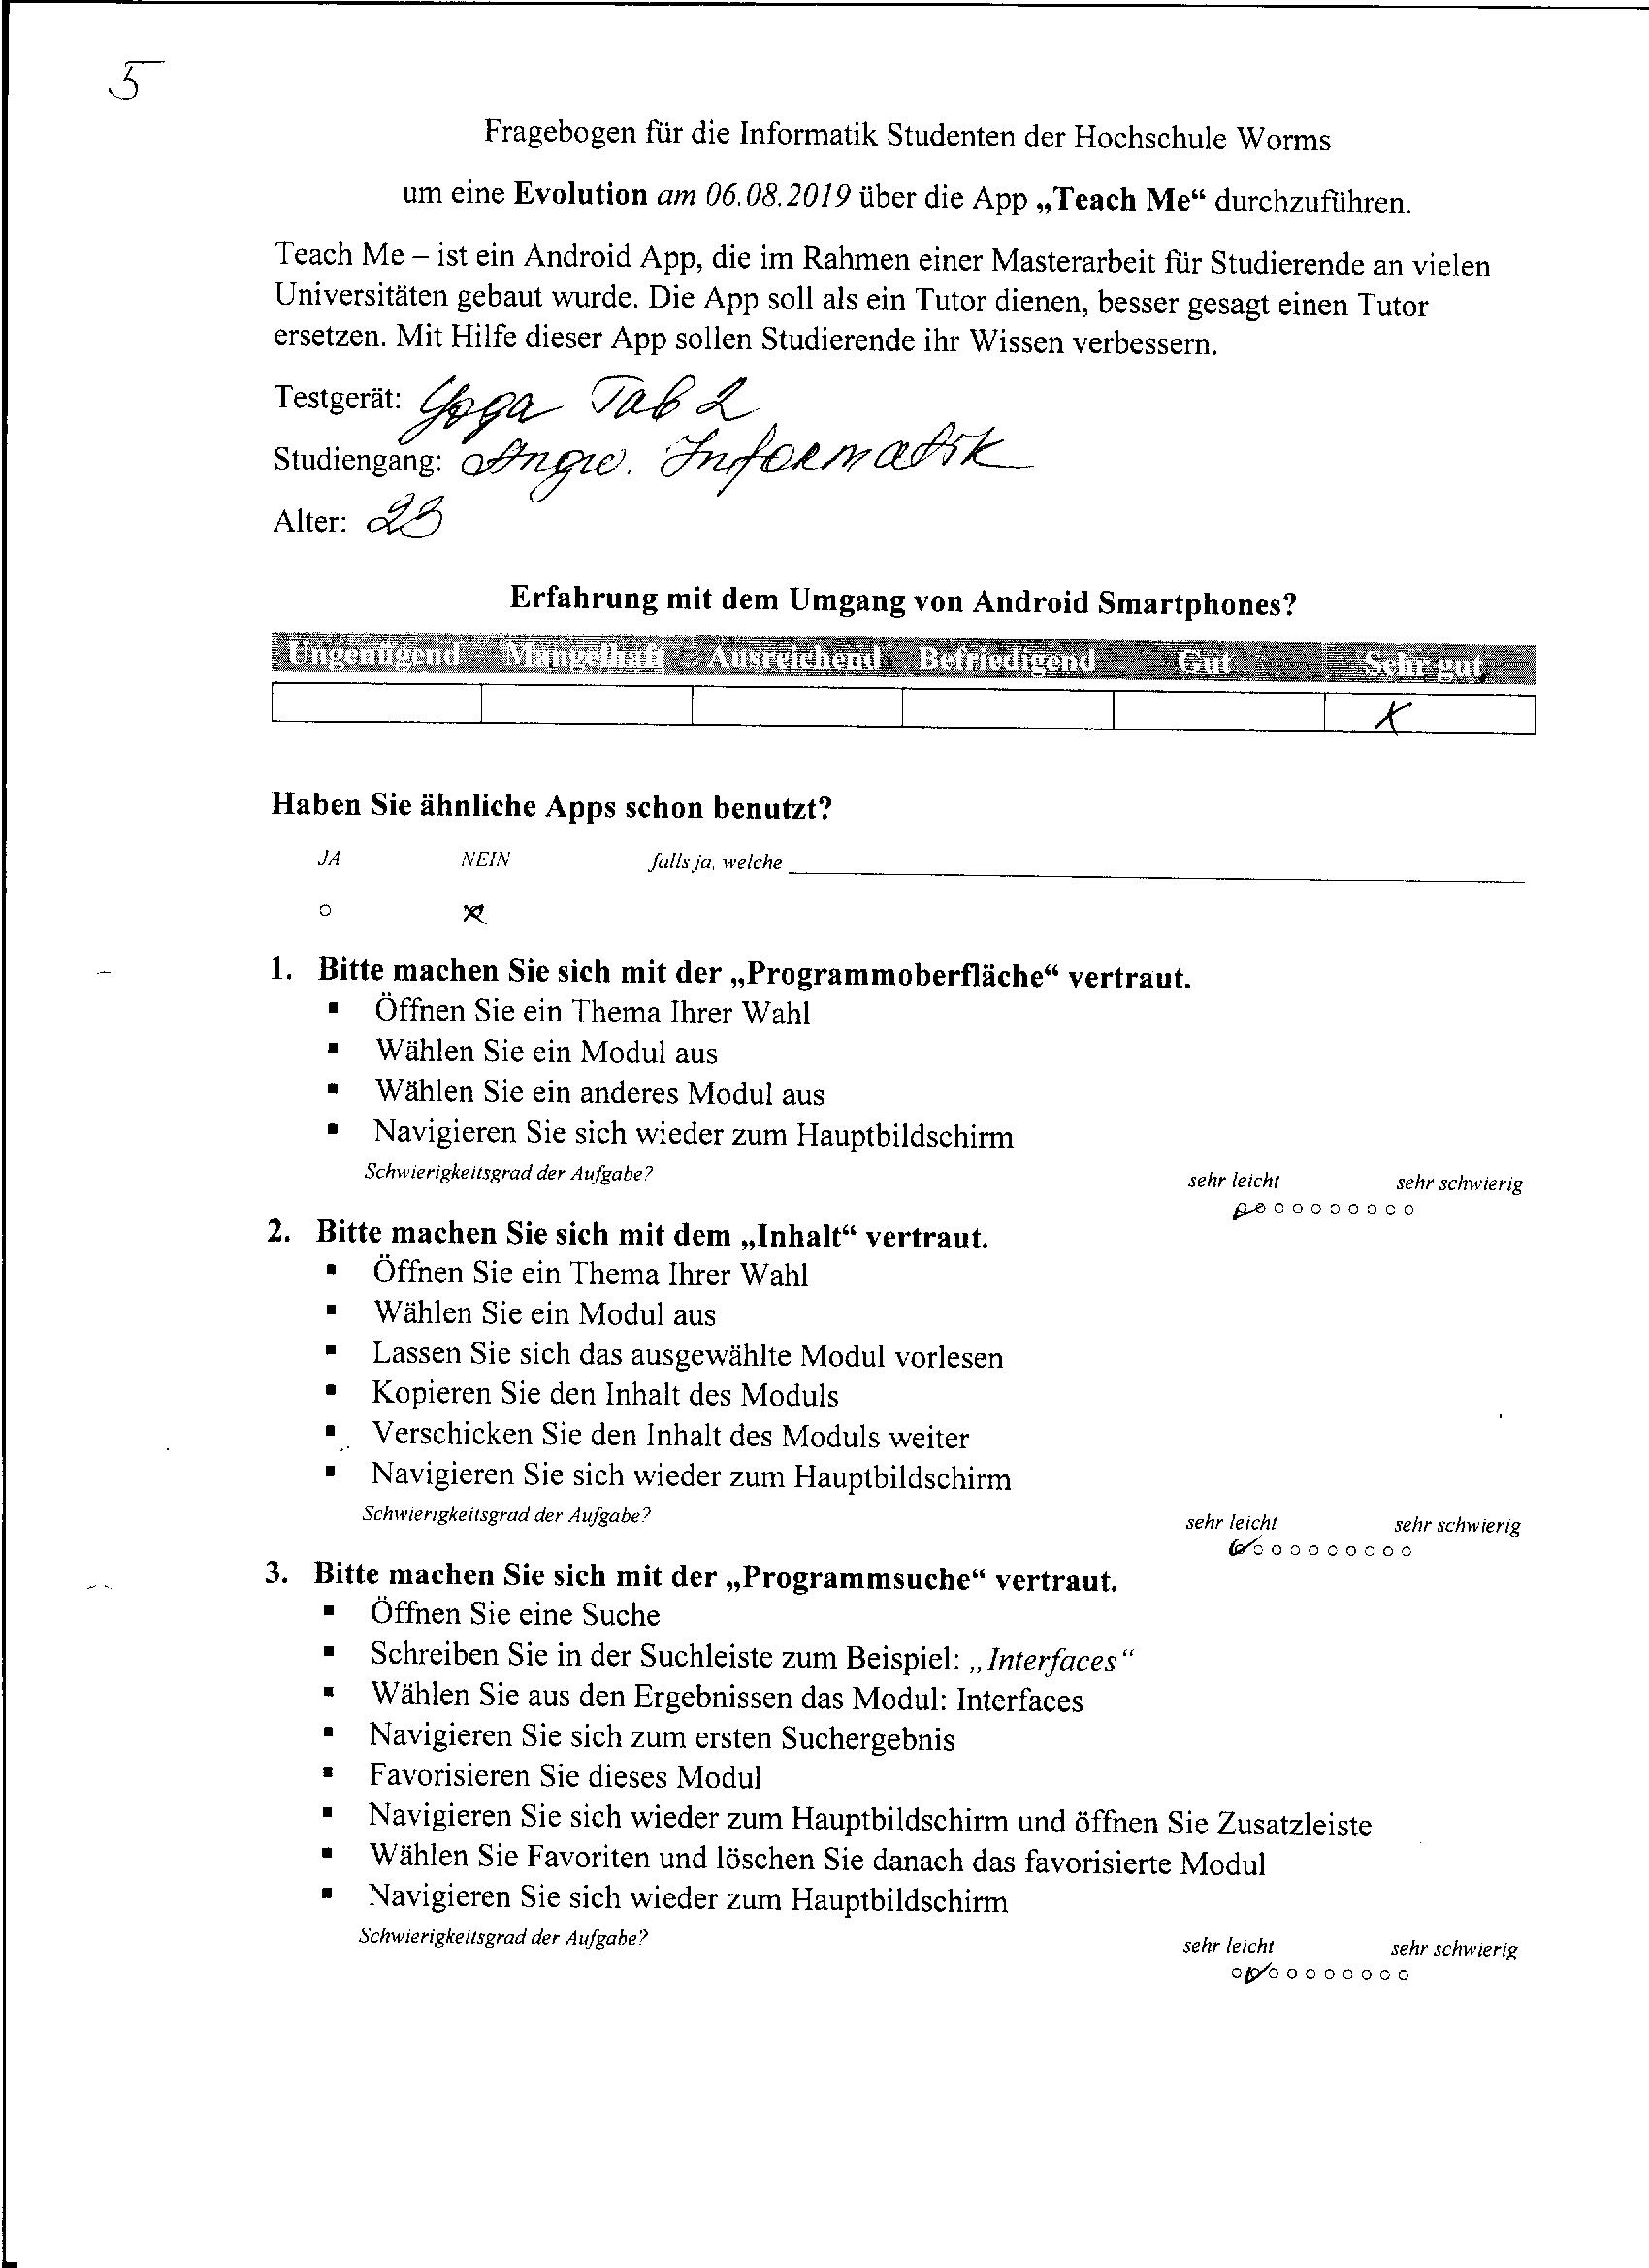 5
Fragebogen für die Informatik Studenten der Hochschule Worms
um eine Evolution am 06.08.2019 über die App „Teach Me“ durchzuführen.
Teach Me – ist ein Android App, die im Rahmen einer Masterarbeit für Studierende an vielen
Universitäten gebaut wurde. Die App soll als ein Tutor dienen, besser gesagt einen Tutor
ersetzen. Mit Hilfe dieser App sollen Studierende ihr Wissen verbessern.
Testgerät: Yoga Tab 2
Studiengang: Angw. Informatik
Alter: 23
Erfahrung mit dem Umgang von Android Smartphones?
Ungenügend Mangelhaft Ausreichend Befriedigend Gut Sehr gut
X
Haben Sie ähnliche Apps schon benutzt?
JA NEIN falls ja, welche
1. Bitte machen Sie sich mit der „Programmoberfläche“ vertraut.
▪ Öffnen Sie ein Thema Ihrer Wahl
▪ Wählen Sie ein Modul aus
▪ Wählen Sie ein anderes Modul aus
▪ Navigieren Sie sich wieder zum Hauptbildschirm
Schwierigkeitsgrad der Aufgabe? sehr leicht sehr schwierig
2. Bitte machen Sie sich mit dem „Inhalt“ vertraut.
▪ Öffnen Sie ein Thema Ihrer Wahl
▪ Wählen Sie ein Modul aus
▪ Lassen Sie sich das ausgewählte Modul vorlesen
▪ Kopieren Sie den Inhalt des Moduls
▪ Verschicken Sie den Inhalt des Moduls weiter
▪ Navigieren Sie sich wieder zum Hauptbildschirm
Schwierigkeitsgrad der Aufgabe? sehr leicht sehr schwierig
3. Bitte machen Sie sich mit der „Programmsuche“ vertraut.
▪ Öffnen Sie eine Suche
▪ Schreiben Sie in der Suchleiste zum Beispiel: „Interfaces“
▪ Wählen Sie aus den Ergebnissen das Modul: Interfaces
▪ Navigieren Sie sich zum ersten Suchergebnis
▪ Favorisieren Sie dieses Modul
▪ Navigieren Sie sich wieder zum Hauptbildschirm und öffnen Sie Zusatzleiste
▪ Wählen Sie Favoriten und löschen Sie danach das favorisierte Modul
▪ Navigieren Sie sich wieder zum Hauptbildschirm
Schwierigkeitsgrad der Aufgabe? sehr leicht sehr schwierig